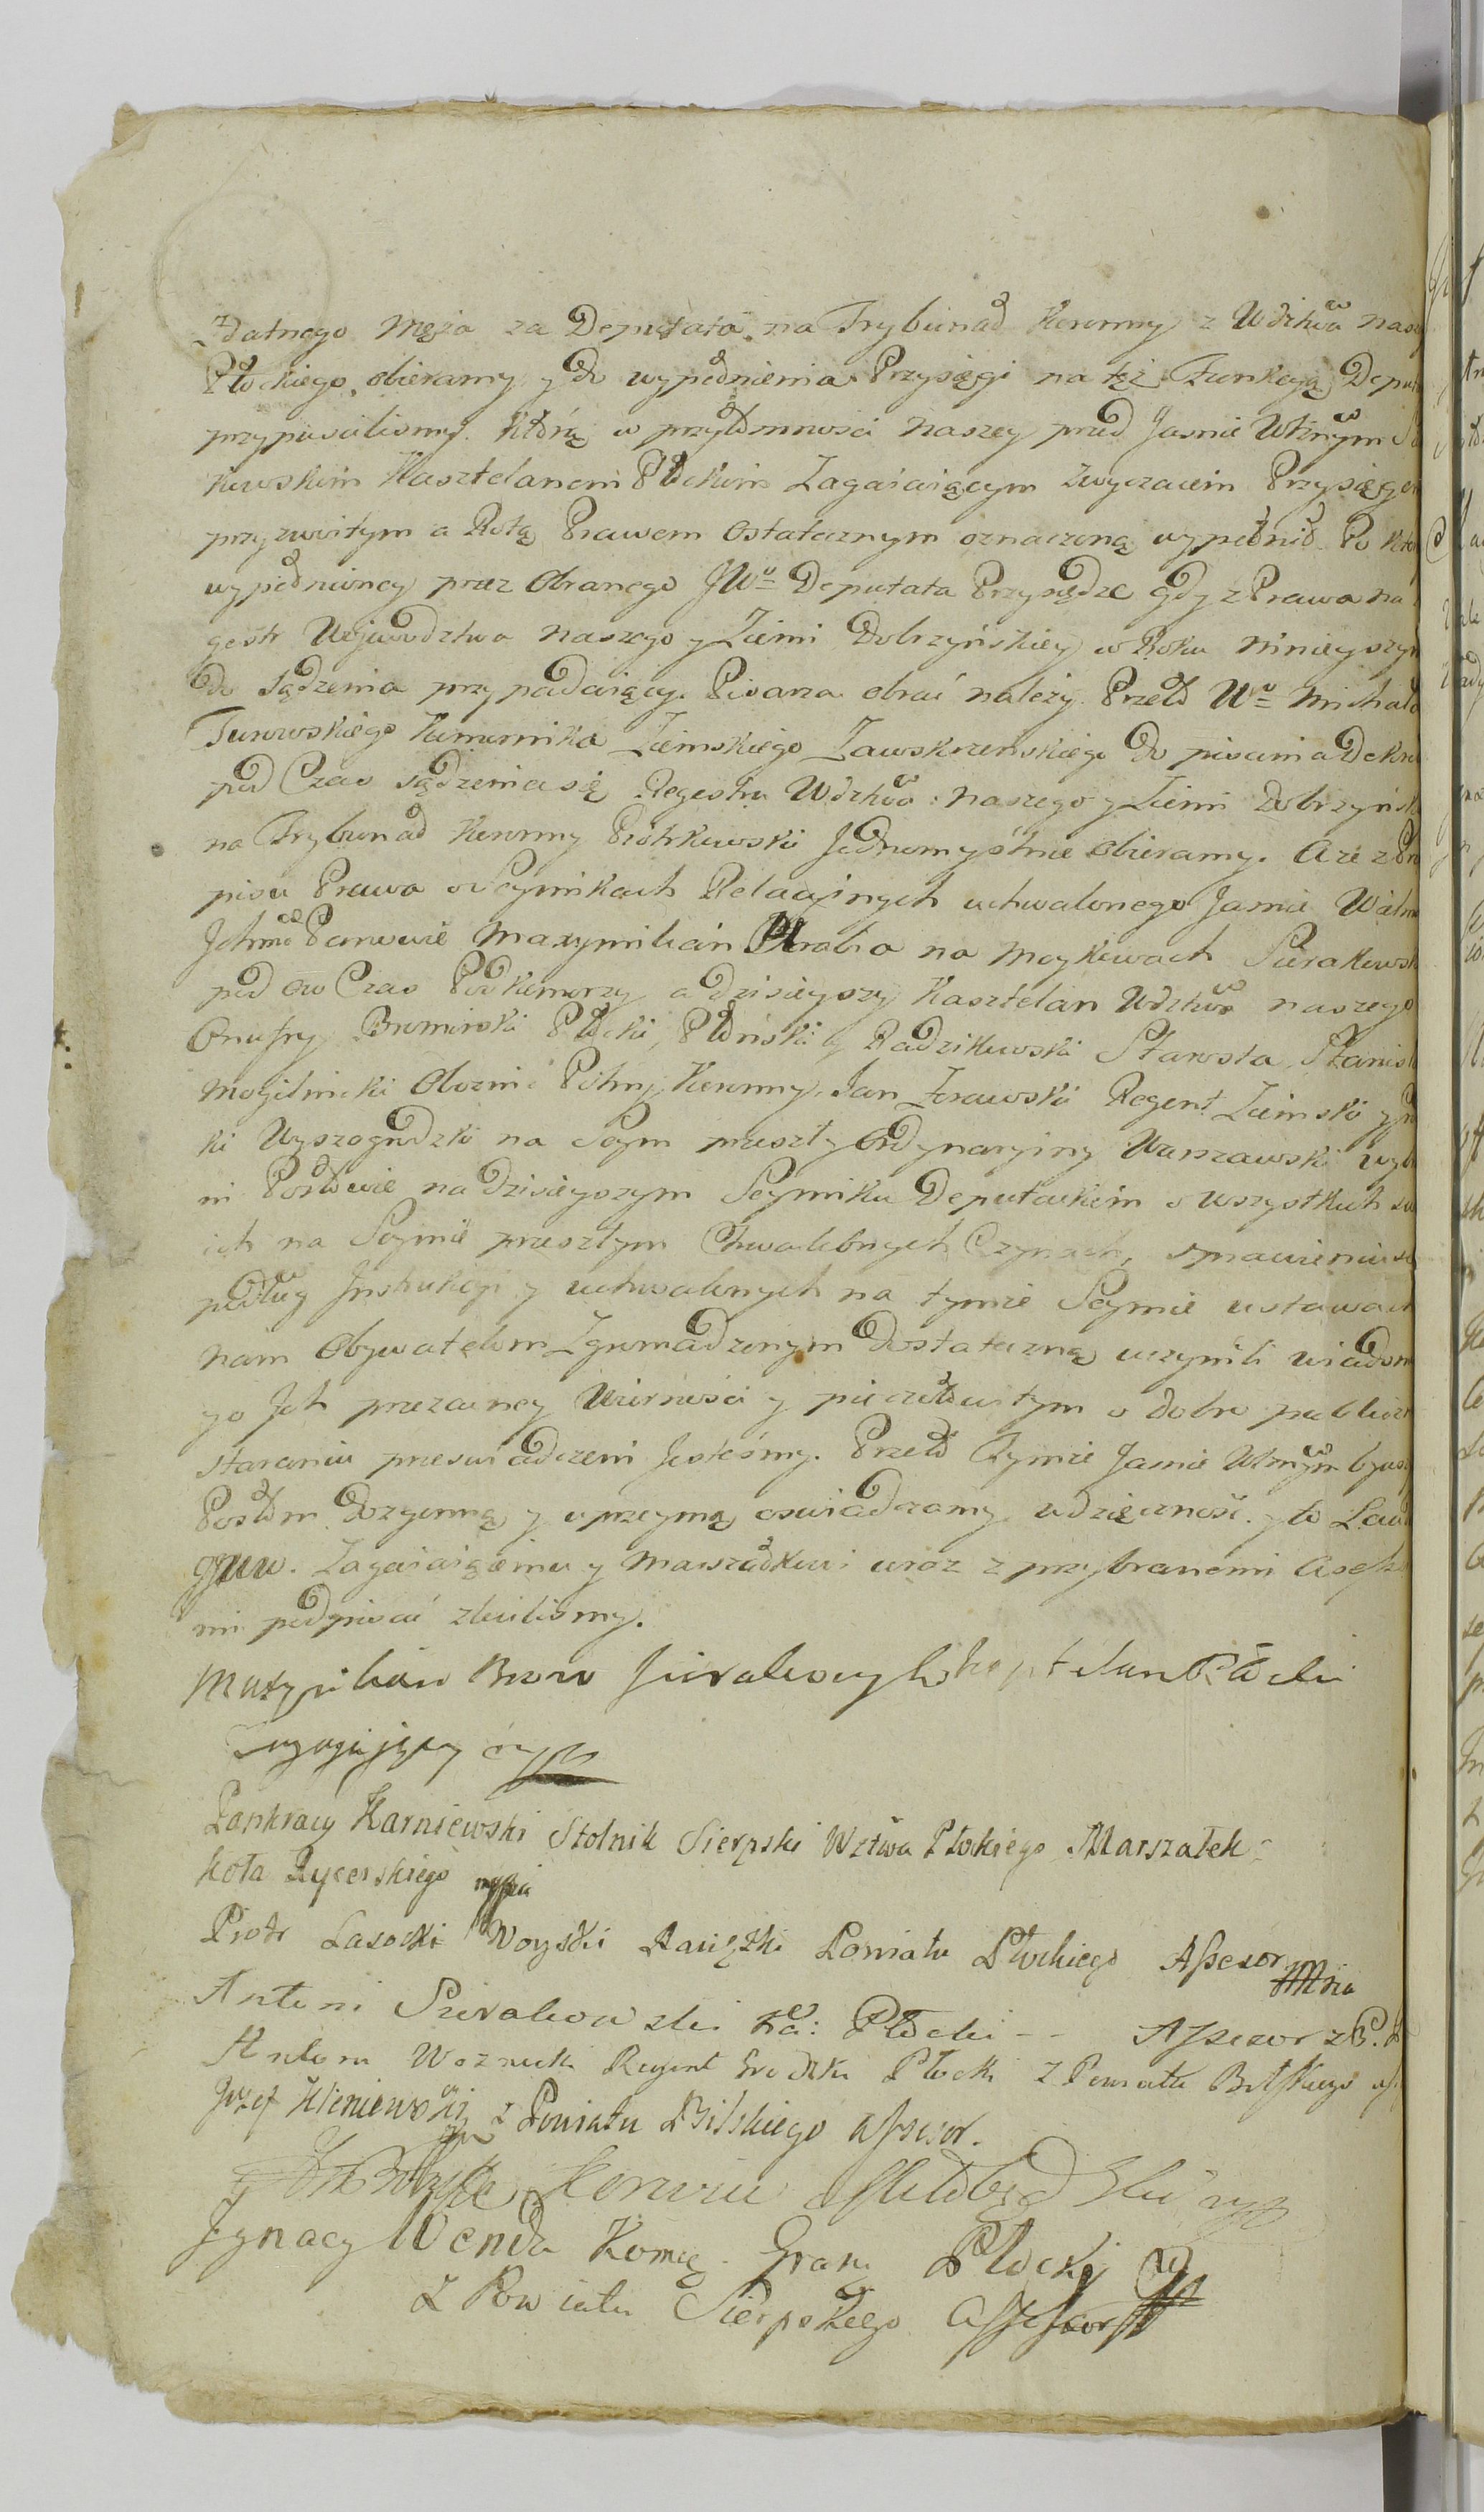 Zdatnego Męża za Deputata na Trybunał Koronny z Wdztwa nas
Płockiego, obieramy y do wypełnienia Przysięgi na tęż Funkcyą Depu
przypuscilismy. Którą w przytomnosci naszey przed Jasnie Wmym
kowskim Kasztelanem Płockim Zagaiaiącym zwyczaiem Przysięgom
przyzwoitym a Rotą Prawem ostatecznym oznaczoną wypełnił. Po
wypełnioney przez Obranego JWo Deputata Przysiędze gdy z Prawa na
gestr Wojewodztwa naszego y Ziemi Dobrzyńskiey w Roku ninieyszym
do sądzenia przypadaiący. Pisarza obrać należy. Przeto Wo Michała
Turowskiego Komornika Ziemskiego Zawskrzenskiego do pisania Dekre
pod Czas sądzenia się Regestru Wdztwa: naszego y Ziemi Dobrzyńsk
na Trybunał Koronny Piotrkowski Jednomyślnie obieramy. A że z
pisu Prawa o Seymikach Relacyinych uchwalonego Jasnie Wielm
Jchmć Panowie Maxymilian Hrabia na Moykowach Sierakowsk
pod ow Czas Podkomorzy a dzisieyszy Kasztelan Wdztwa naszego
Onufry Bromirski Płocki, Płoński y Radzikowski Starosta, Stanisł
Mogilnicki Obozni Polny Koronny, Jan Zórawski Regent Ziemski y
ki Wyszogrodzki na Seym przeszły Ordynaryiny Warszawski wyb
ni Posłowie na dzisieyszym Seymiku Deputackim o wszystkich
ich na Seymie przeszłym Chwalebnych Czynach, sprawieniu
podług Jnstrukcyi y uchwalonych na tymże Seymie ustawach
nam Obywatelom Zgromadzonym dostateczną uczynili wiadom
yo Jch przezacney Wierności y pieczołowitym o dobro publicz
staraniu przeswiadczeni Jesteśmy. Przeto Tymże Jasnie Wmym byws
Posłom dozgonną y uprzeymą oswiadczamy wdzięczność. y to Laud
Zagaiaiącemu y Marszałkowi wraz z przybranemi Asess
mi podpisać zleciliśmy.
Maxymilian Sierakowsky Kasztelan Płocki
Zagajający
Pankracy Karniewski Stolnik Sierpski Wztwa Płockiego Marszałek
koła Rycerskiego mppia
Piotr Lasocki Woyski Raciązki Powiatu Płockiego Assesor
Antoni Sierakowski Płocki -- Assesor z P.
Antoni Woznicki Regent Grodzki Płocki z Powiatu Bilskiego
Józef Kleniewski z Powiatu Bilskiego assesor.
Korwin
Jgnacy Wenda Komor Gran Płocki
Z Powiatu Sierpskiego Assessor